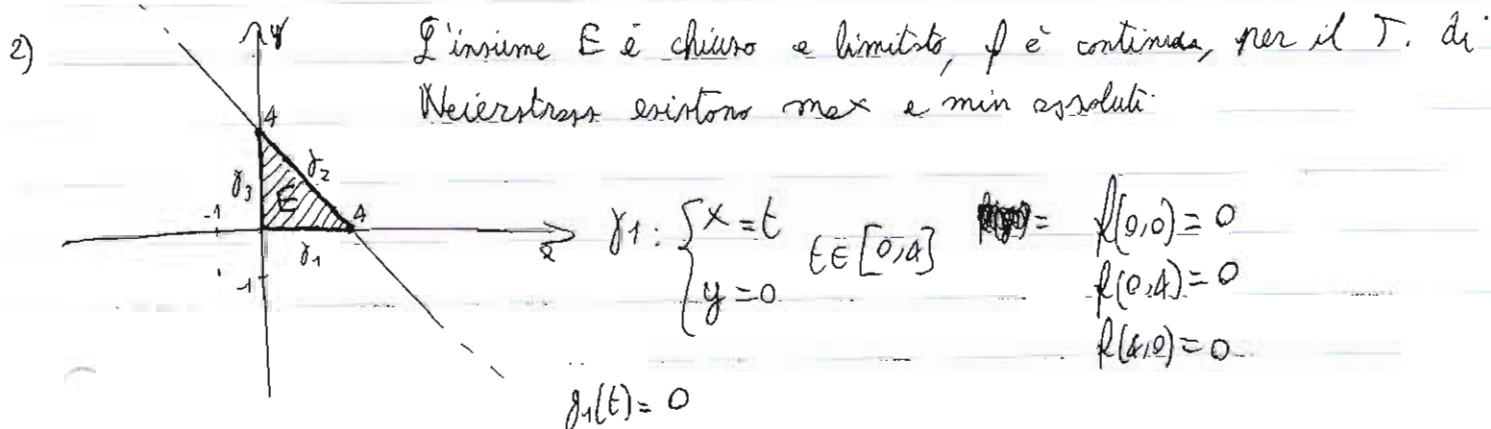 2)
L'insieme E è chiuso e limitato, f è continua, per il T. di
Weierstrass esistono max e min assoluti.
y
4
γ2
γ3
E
-1
4
γ1
x
-1
γ1: { x = t
y = 0
t ∈ [0,4]
=
f(0,0) = 0
f(0,4) = 0
f(4,0) = 0
g1(t) = 0